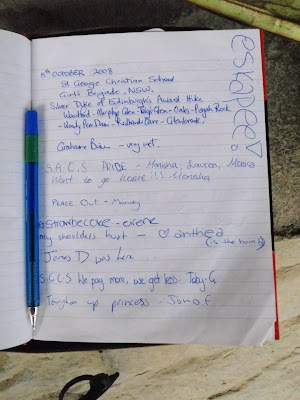 5th OCTOBER 2008
St George Christian School
Girls Brigade, NSW.
Silver Duke of Edinburgh's Award Hike
Woodford - Murphys Glen - - Oaks - Rock
- Woody Dam - Cave - Glenbrook.
Grahame - very wet.
S.A.C.S PRIDE - Monisha, Lauren,
Want to go HOME!!! Monisha
Peace Out - Mandy
-
my shoulders hurt - ♡ anthea
(is the bomb)
James D was here...
S.G.C.S We pay more, we get less. Toby-G
Toughen up princess - Jono F
eskapee!